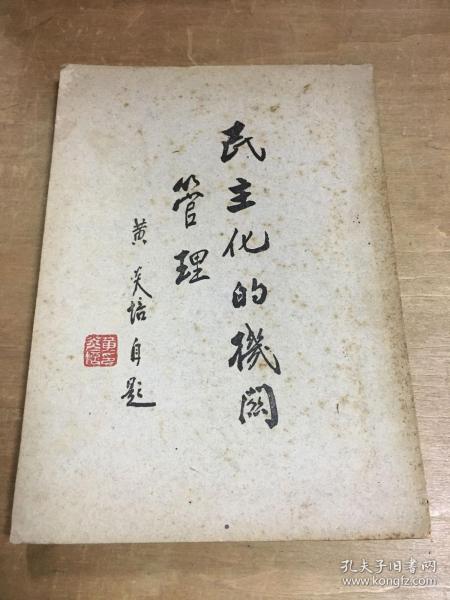 民主化的機關
管理
黄炎培自題
孔夫子旧书网
www.kongfz.com